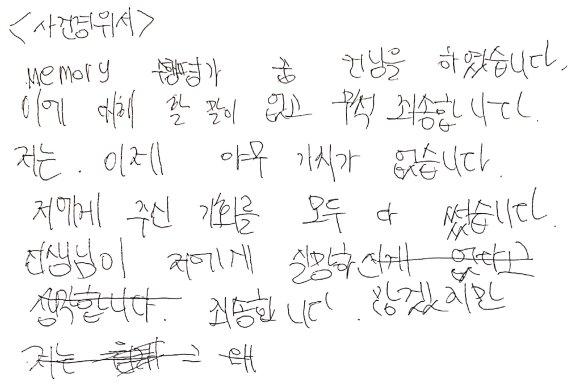 <사건경위서>
memory 수행평가 중 컨닝을 하였습니다.
이에 대해 할 말이 없고 무척 죄송합니다.
저는 이제 아무 가치가 없습니다.
저에게 주신 기회를 모두 다 썼습니다.
선생님이 저에게 실망하신게 없다고
생각합니다. 죄송합니다. 않겠지만
저는 그 왜